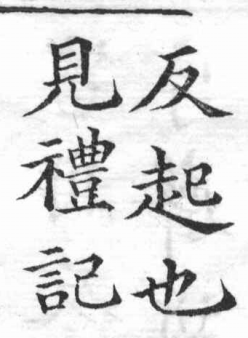 反起也
見禮記